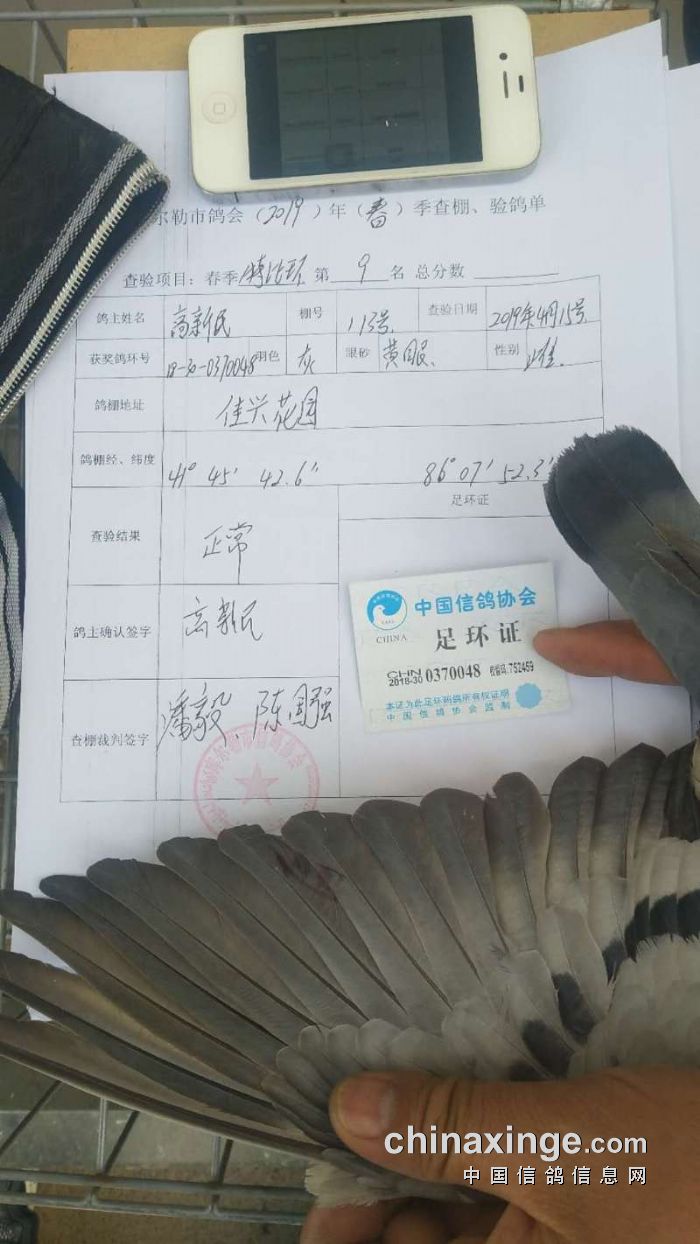 尔勒市鸽会（2019）年（春）季查棚、验鸽单
查验项目：春季特比环 第 9 名 总分数
鸽主姓名 高新民 棚号 113号 查验日期 2019年4月15号
获奖鸽环号 18-30-0370048 羽色 灰 眼砂 黄眼、 性别 雄.
鸽棚地址 佳兴花园
鸽棚经、纬度 41° 45′ 42.6″ 86°07′ 52.3″
足环证
查验结果 正常
鸽主确认签字 高新民
查棚裁判签字 潘毅、陈国强
中国信鸽协会
CHINA
足环证
CHN
2018-30 0370048 校验码:752459
本证为此足环码鸽所有权证明
中国信鸽协会监制
chinaxinge.com
中国信鸽信息网